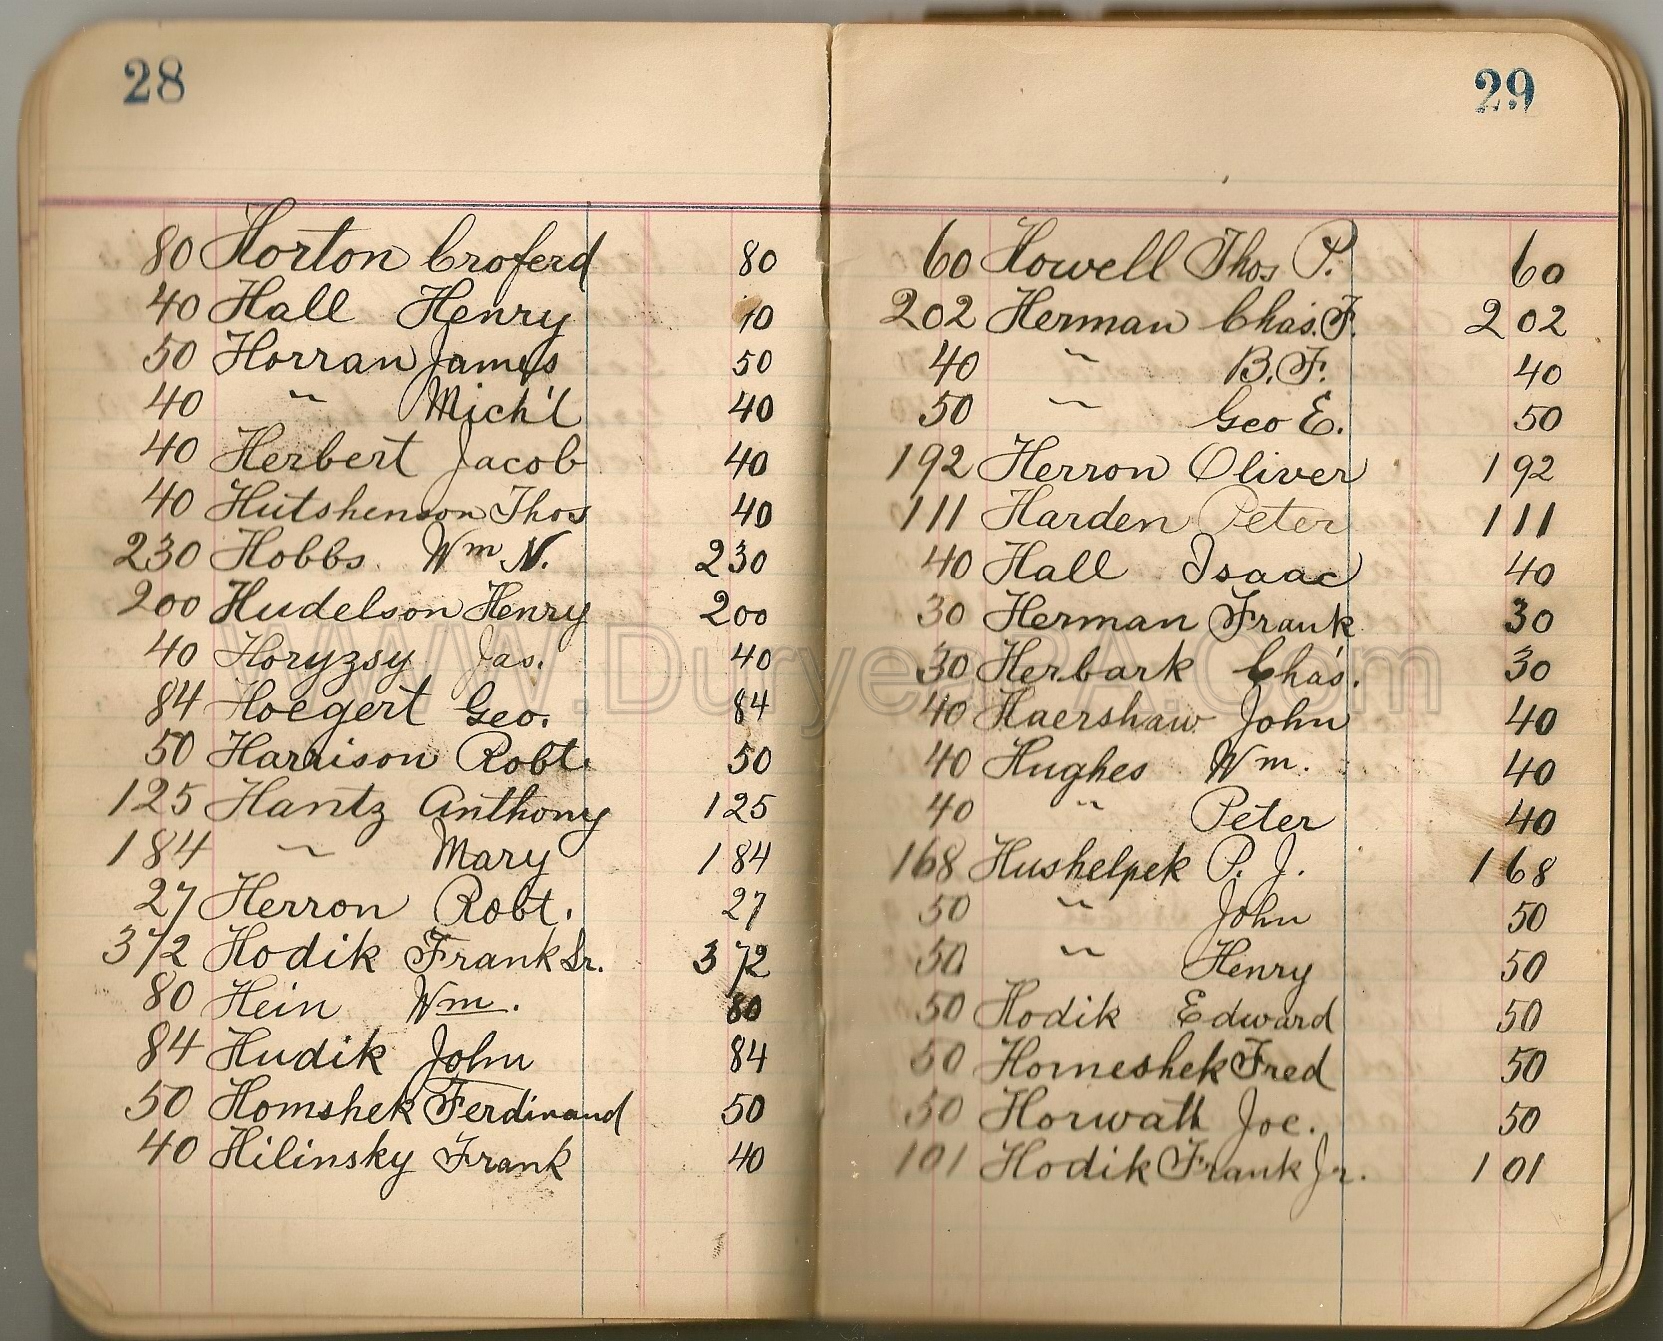 28
80 Horton Croferd 80
40 Hall Henry 10
50 Horran James 50
40 " Mich'l 40
40 Herbert Jacob 40
40 Hutshenson Thos 40
230 Hobbs Wm N. 230
200 Hudelson Henry 200
40 Horyzsy Jas. 40
84 Hoegert Geo. 84
50 Harrison Robt. 50
125 Hantz Anthony 125
184 " Mary 184
27 Herron Robt. 27
372 Hodik Frank Sr. 372
80 Hein Wm. 80
84 Hudik John 84
50 Homshek Ferdinand 50
40 Hilinsky Frank 40
29
60 Howell Thos P. 60
202 Herman Chas. F. 202
40 " B. F. 40
50 " Geo E. 50
192 Herron Oliver 192
111 Harden Peter 111
40 Hall Isaac 40
30 Herman Frank 30
30 Herbark Chas. 30
40 Haershaw John 40
40 Hughes Wm. 40
40 " Peter 40
168 Hushelpek P. J. 168
50 " John 50
50 " Henry 50
50 Hodik Edward 50
50 Homeshek Fred 50
50 Horwath Joe. 50
101 Hodik Frank Jr. 101
www.DuryeaPA.com